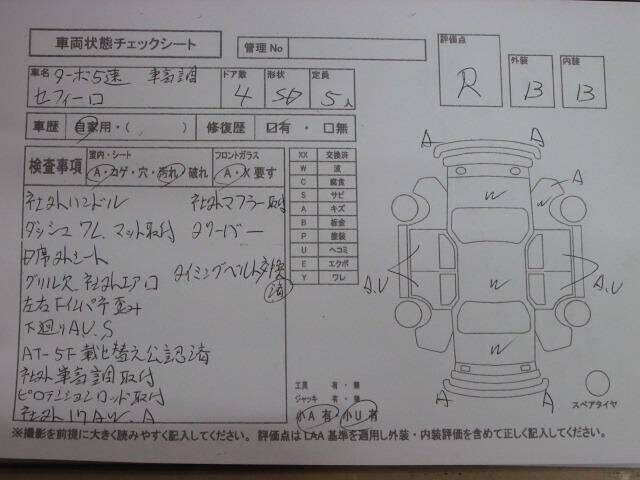 車両状態チェックシート
管理No
評価点
R
外装
B
内装
B
車名 ターボ5速 車高調
セフィーロ
ドア数
4
形状
SD
定員
5人
車歴 自家用・( )
修復歴 ☑有・□無
検査事項
室内・シート
A・コゲ・穴・汚れ 破れ
フロントガラス
A・X 要す
XX 交換済
W 波
C 腐食
S サビ
A キズ
B 板金
P 塗装
U ヘコミ
E エクボ
Y ワレ
社外ハンドル 社外マフラー取付
ダッシュワレ、マット取付 タワーバー
日席外シート
グリル欠 社外エアロ タイミングベルト交換済
左右Fインパネ歪み
下廻りAU、S
AT-5F載せ替え公認済
社外車高調取付
ピロテンションロッド取付
社外17AW、A
A
A
A
W
W
A.U
A.U
W
W
A
A
工具 有・無
ジャッキ 有・無
小A有 小U有
スペアタイヤ
※撮影を前提に大きく読みやすく記入してください。 評価点はLAA基準を適用し外装・内装評価を含めて正しく記入してください。